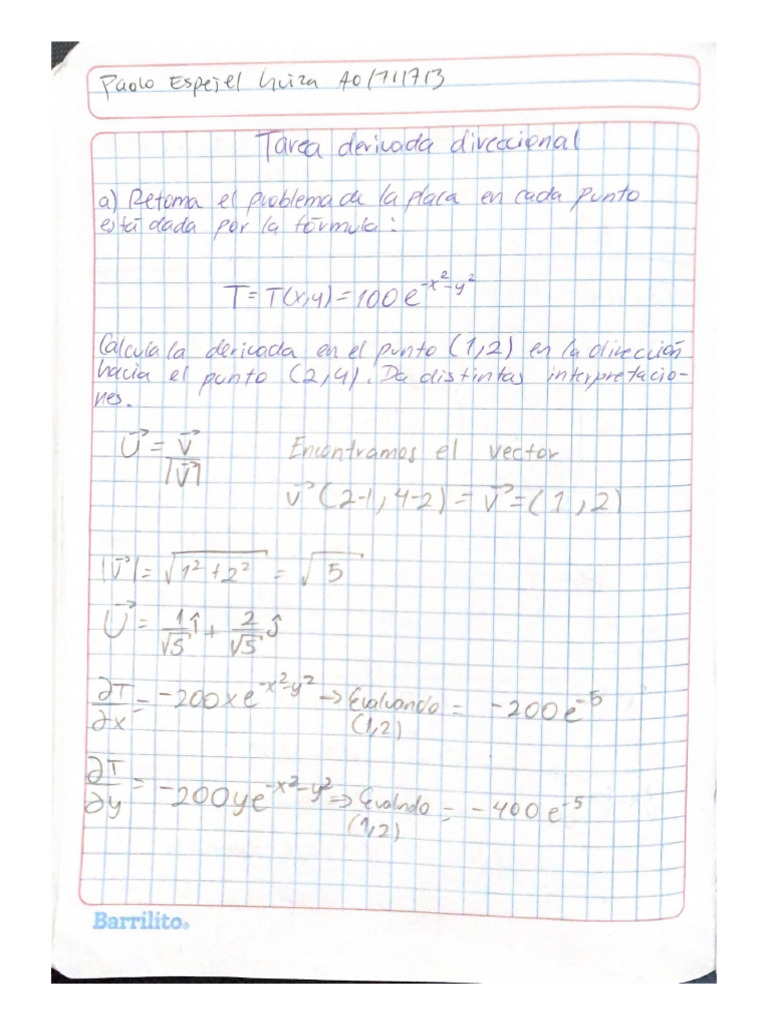 Paolo Espejel Luiza A01711713
Tarea derivada direccional
a) Retoma el problema de la placa en cada punto
está dada por la fórmula:
T = T(x,y) = 100e^{-x²-y²}
Calcula la derivada en el punto (1,2) en la dirección
hacia el punto (2,4). Da distintas interpretacio-
nes.
U⃗ = V⃗/|V⃗| Encontramos el vector
v⃗ (2-1, 4-2) = V⃗ = (1, 2)
|V⃗| = √(1² + 2²) = √5
U⃗ = 1/√5 î + 2/√5 ĵ
∂T/∂x = -200xe^{-x²-y²} → Evaluando (1,2) = -200e^{-5}
∂T/∂y = -200ye^{-x²-y²} → Evalundo (1,2) = -400e^{-5}
Barrilito®